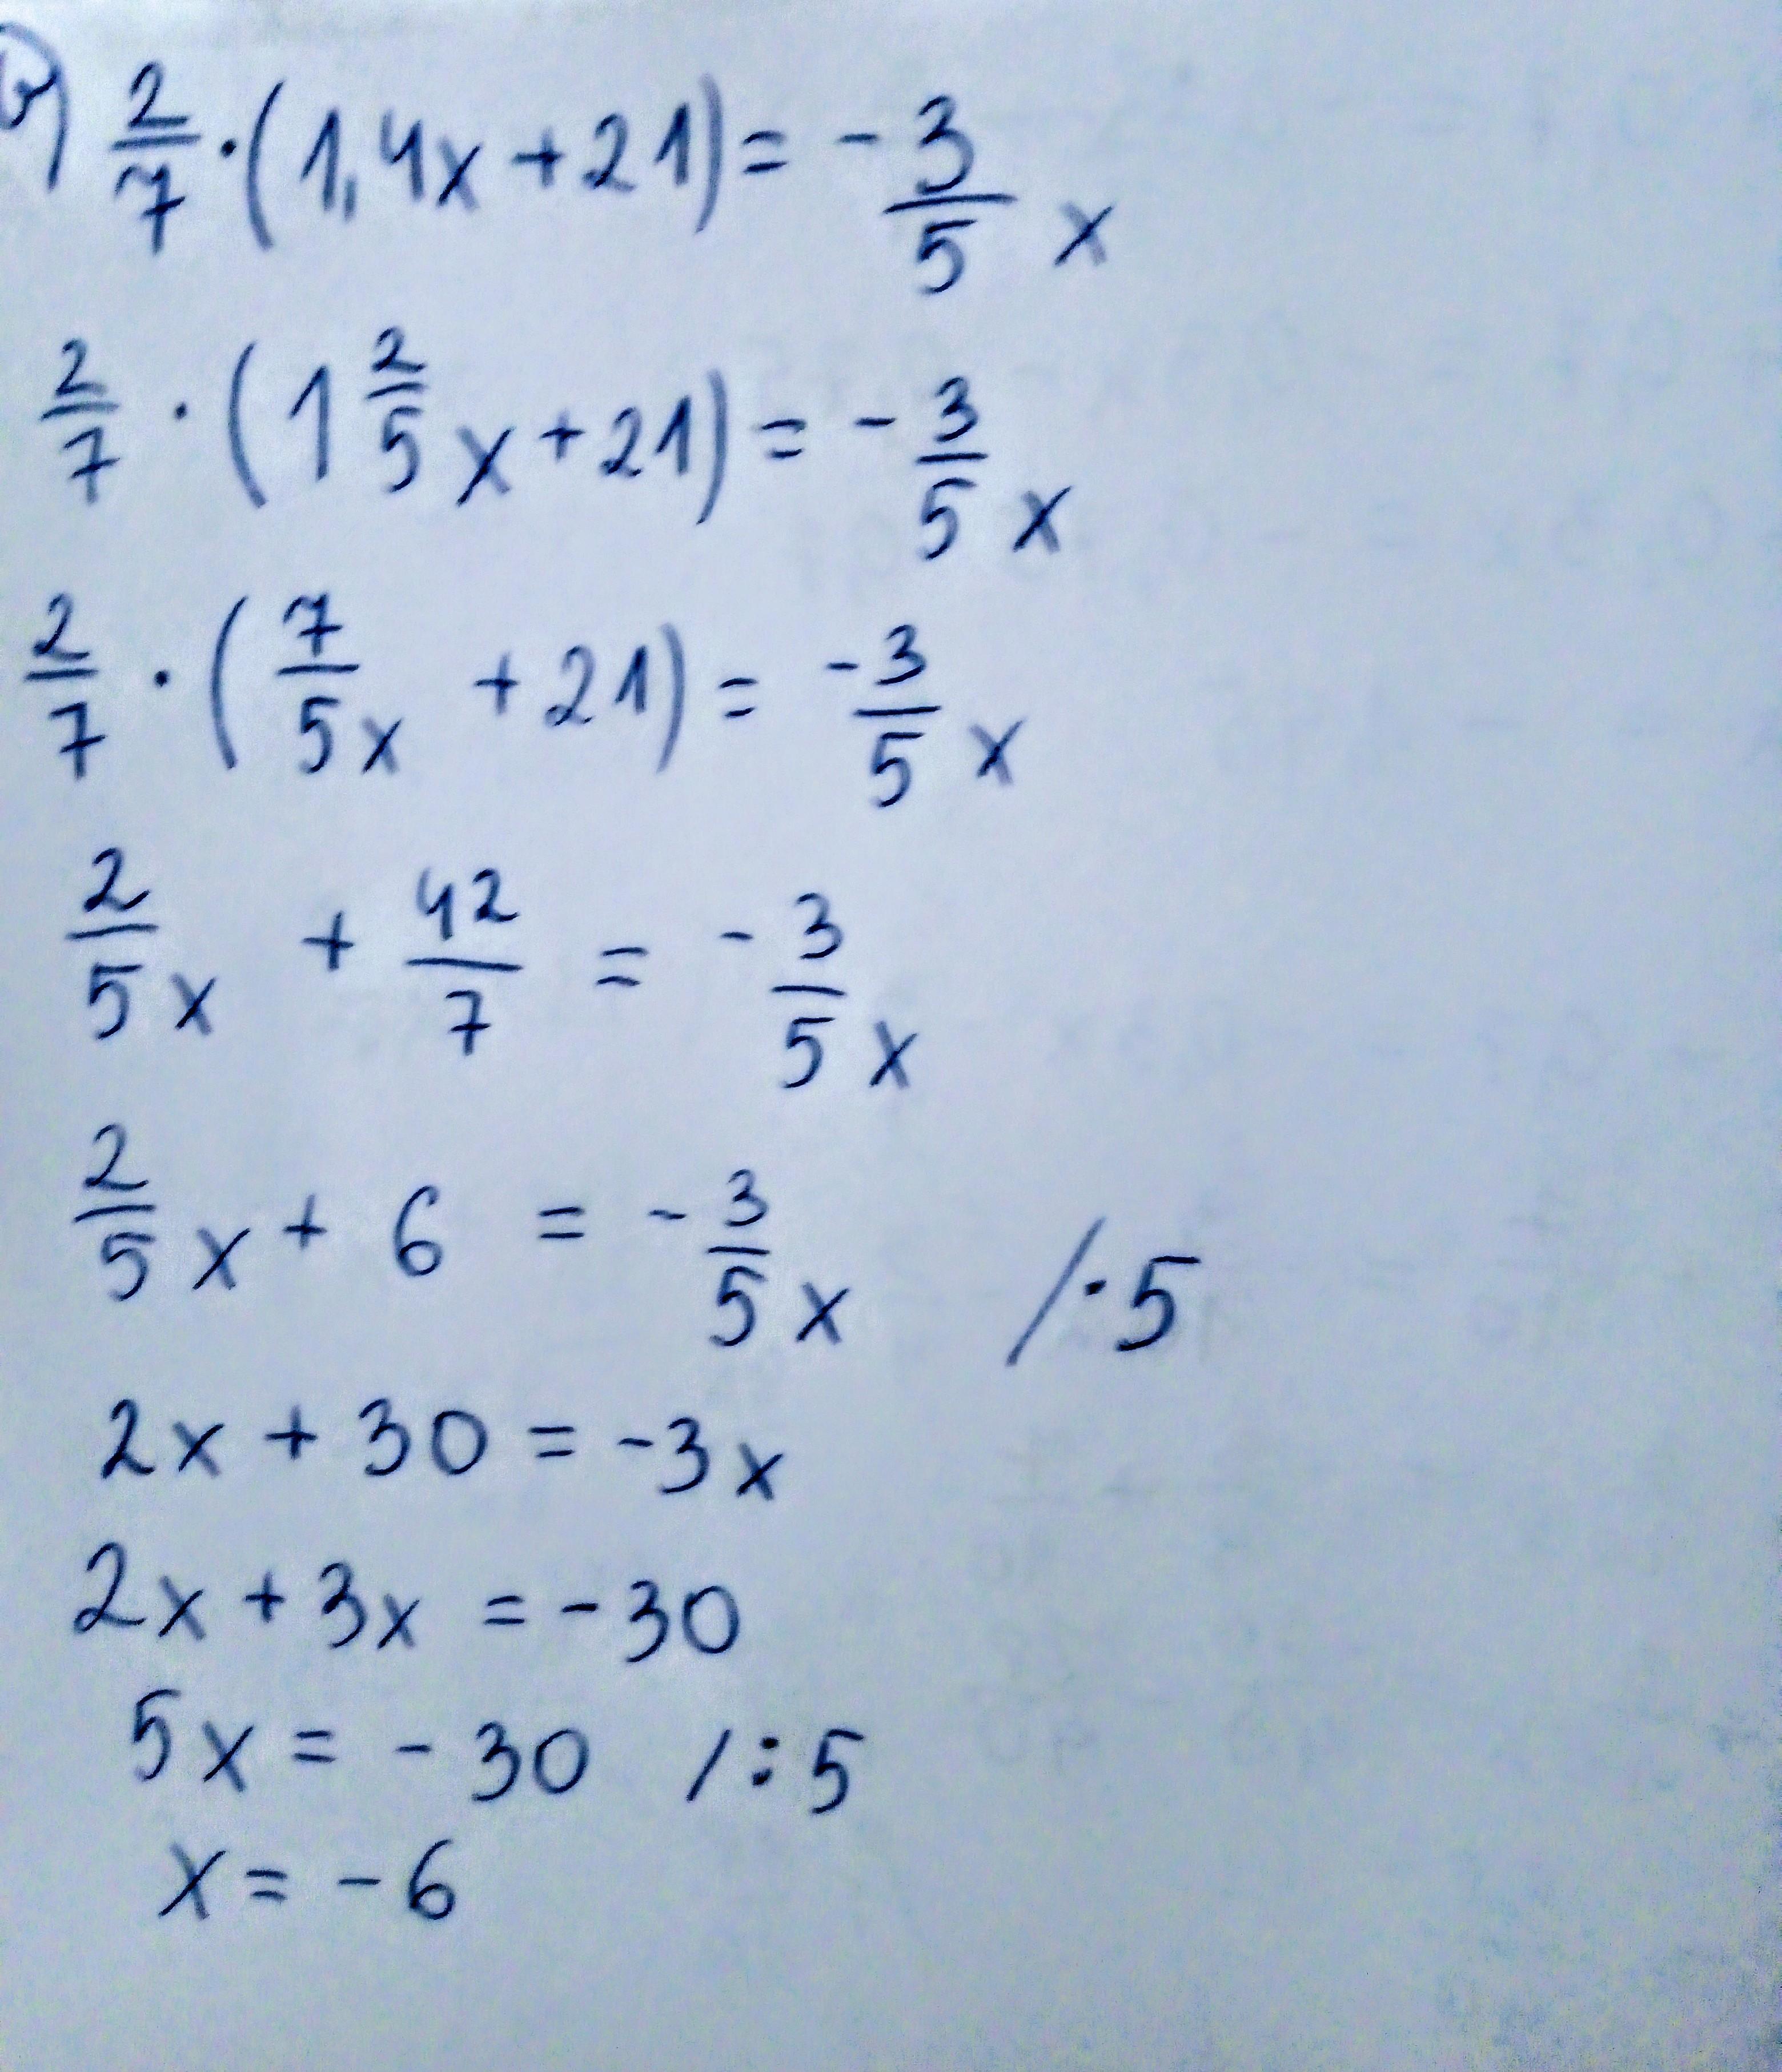 b) 2/7 · (1,4x + 21) = - 3/5 x
2/7 · (1 2/5 x + 21) = - 3/5 x
2/7 · (7/5x + 21) = -3/5 x
2/5x + 42/7 = - 3/5 x
2/5 x + 6 = - 3/5 x /·5
2x + 30 = -3x
2x + 3x = -30
5x = - 30 /:5
x = -6